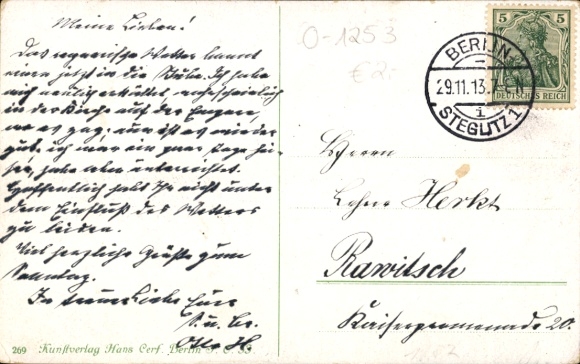 Meine Lieben!
Das regnerische Wetter bannt
einen jetzt in die Stube. Ich habe
mich neulich erkältet wahrscheinlich
in der Kirche auf der Empore,
wo es zog; nun ist es wieder
gut. ich war ein paar Tage hei-
ser, habe aber unterrichtet.
Hoffentlich habt Ihr nicht unter
dem Einfluß des Wetters
zu leiden.
Viel herzliche Grüße zum
Sonntag.
In treuer Liebe Euer
S. u. Br.
Otto H.
269 Kunstverlag Hans Cerf. Berlin
O-1253
€ 2.-
5
DEUTSCHES REICH
BERLIN-
29.11.13. 7-
STEGLITZ 1
Herrn
Lehrer Herkt
Rawitsch
Kaiserpromenade 20.